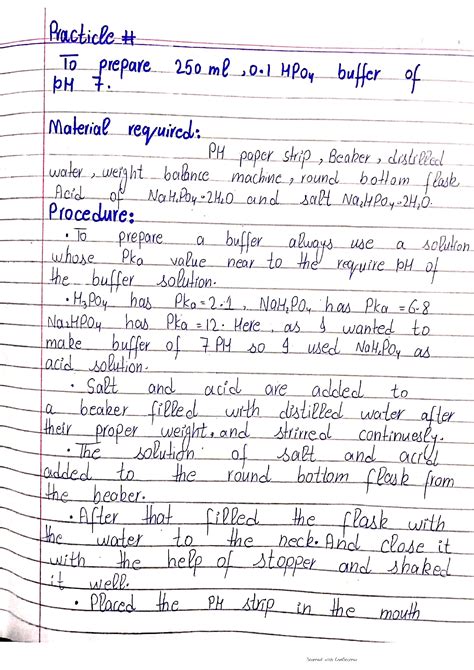 Practicle #
To prepare 250 ml, 0.1 HPO4 buffer of
pH 7.
Material required:
PH paper strip, Beaker, distilled
water, weight balance machine, round bottom flask
Acid of NaH2PO4-2H2O and salt Na2HPO4-2H2O.
Procedure:
• To prepare a buffer always use a solution
whose Pka value near to the require pH of
the buffer solution.
• H3PO4 has Pka=2.1, NaH2PO4 has Pka=6.8
Na2HPO4 has Pka=12. Here, as I wanted to
make buffer of 7 PH so I used NaH2PO4 as
acid solution.
• Salt and acid are added to
a beaker filled with distilled water after
their proper weight. and strirred continuesly.
• The solution of salt and acid
added to the round bottom flask from
the beaker.
• After that filled the flask with
the water to the neck. And close it
with the help of stopper and shaked
it well.
• Placed the PH strip in the mouth
Scanned with CamScanner